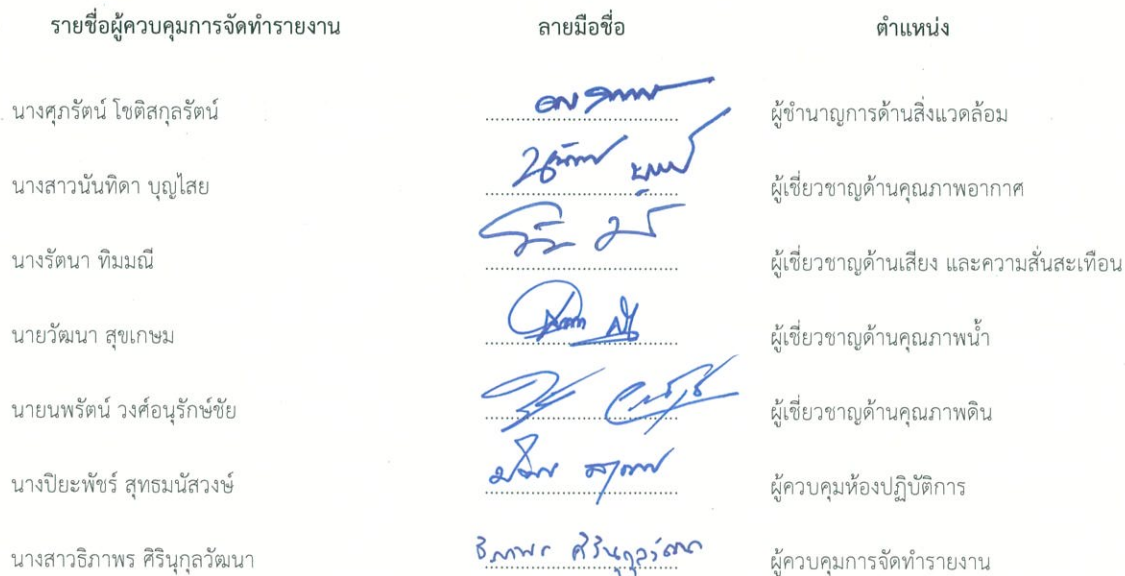 รายชื่อผู้ควบคุมการจัดทำรายงาน ลายมือชื่อ ตำแหน่ง
นางศุภรัตน์ โชติสกุลรัตน์ ผู้ชำนาญการด้านสิ่งแวดล้อม
นางสาวนันทิดา บุญไสย ผู้เชี่ยวชาญด้านคุณภาพอากาศ
นางรัตนา ทิมมณี ผู้เชี่ยวชาญด้านเสียง และความสั่นสะเทือน
นายวัฒนา สุขเกษม ผู้เชี่ยวชาญด้านคุณภาพน้ำ
นายนพรัตน์ วงศ์อนุรักษ์ชัย ผู้เชี่ยวชาญด้านคุณภาพดิน
นางปิยะพัชร์ สุทธมนัสวงษ์ ผู้ควบคุมห้องปฏิบัติการ
นางสาวธิภาพร ศิรินุกูลวัฒนา ธิภาพร ศิรินุกูลวัฒนา ผู้ควบคุมการจัดทำรายงาน